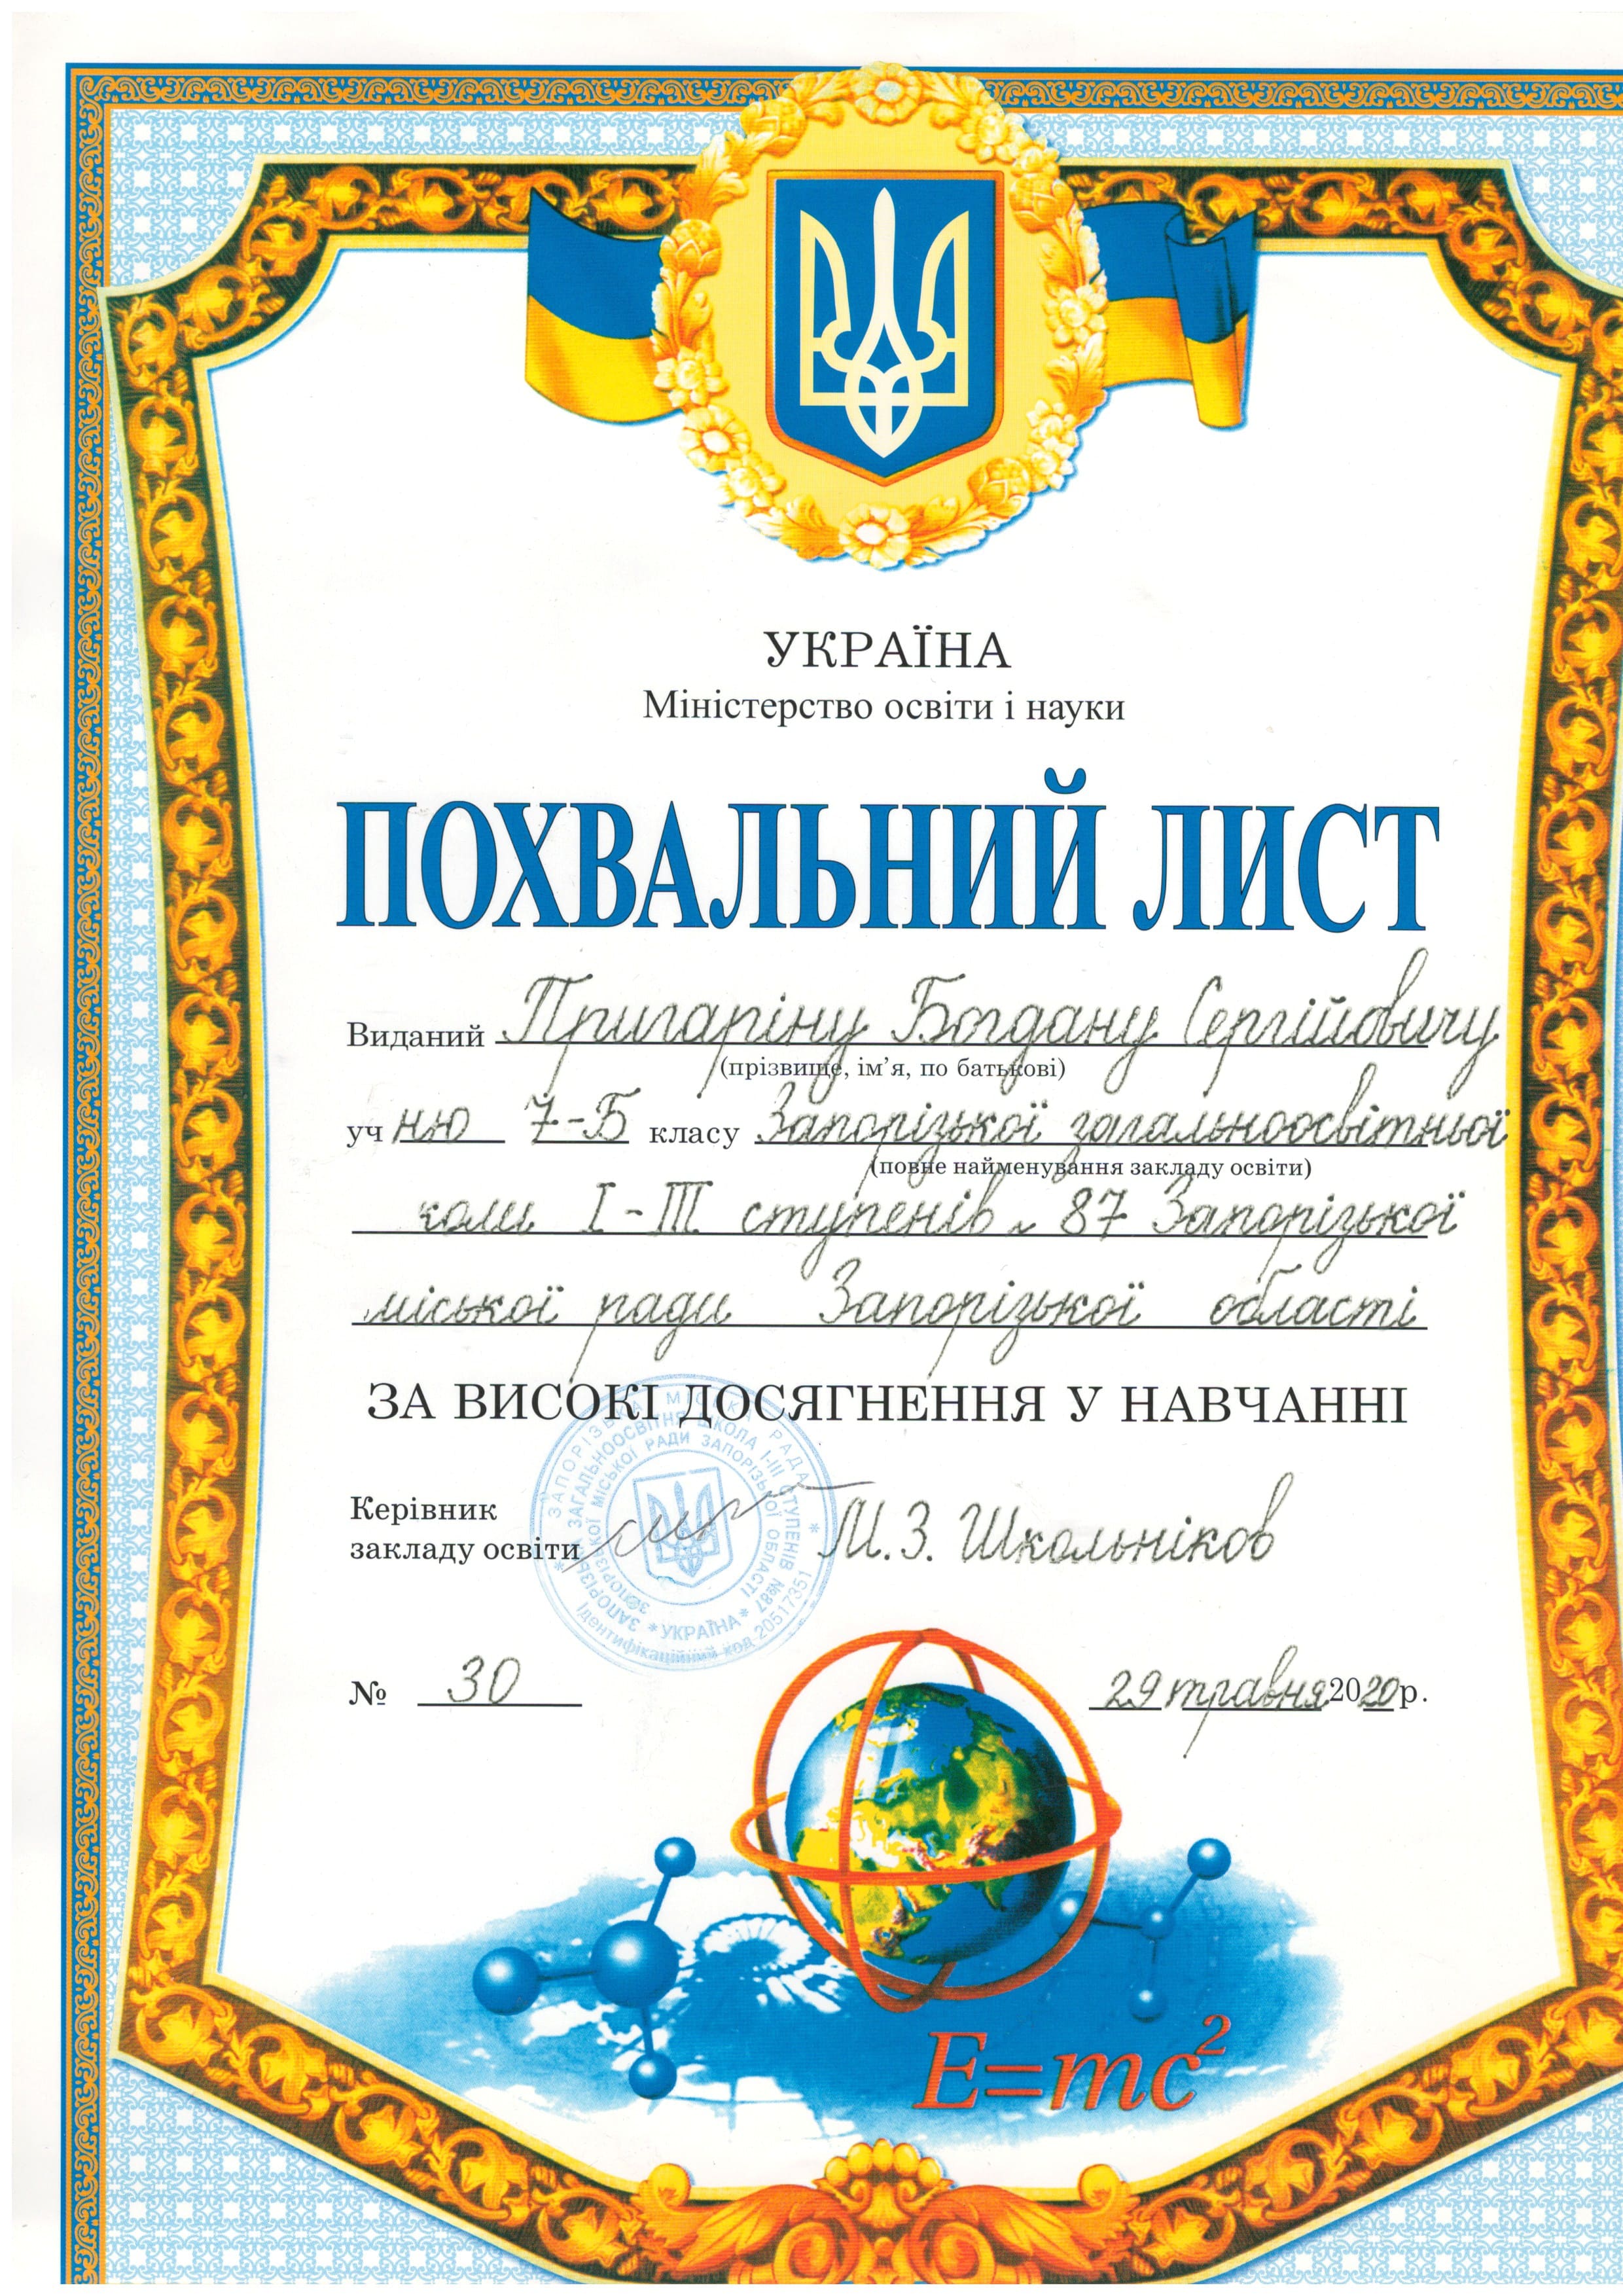 УКРАЇНА
Міністерство освіти і науки
ПОХВАЛЬНИЙ ЛИСТ
Виданий Пригаріну Богдану Сергійовичу
(прізвище, ім’я, по батькові)
учню 7-Б класу Запорізької загальноосвітньої
(повне найменування закладу освіти)
коли І-ІІІ ступенів № 87 Запорізької
міської ради Запорізької області
ЗА ВИСОКІ ДОСЯГНЕННЯ У НАВЧАННІ
Керівник
закладу освіти М.З. Школьніков
ЗАПОРІЗЬКА МІСЬКА РАДА
ЗАПОРІЗЬКА ЗАГАЛЬНООСВІТНЯ ШКОЛА І-ІІІ СТУПЕНІВ №87
ЗАПОРІЗЬКОЇ МІСЬКОЇ РАДИ ЗАПОРІЗЬКОЇ ОБЛАСТІ
* УКРАЇНА *
Ідентифікаційний код 20517351
№ 30
29 травня 2020 р.
E=mc²